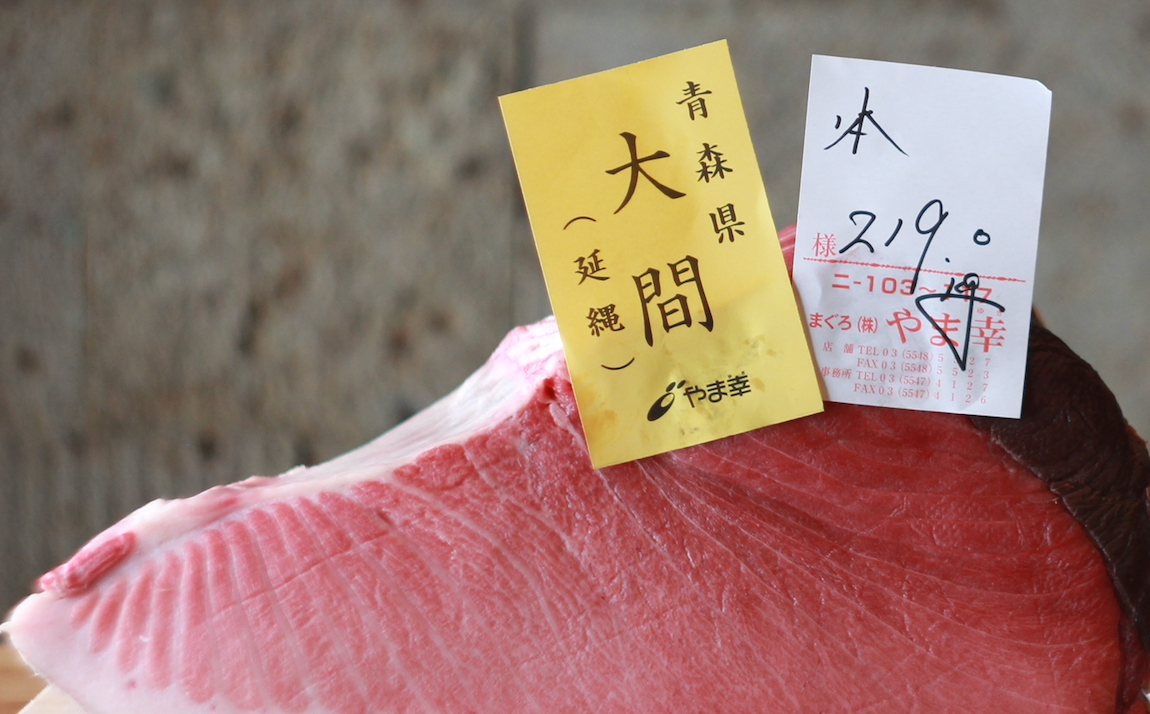 青森県
大間
（延縄）
やま幸
本
様 219.0
ニ-103～
まぐろ（株）やま幸
店舗 TEL 03（5548）5 27
FAX 03（5548）5523
事務所 TEL 03（5547）4127
FAX 03（5547）4126